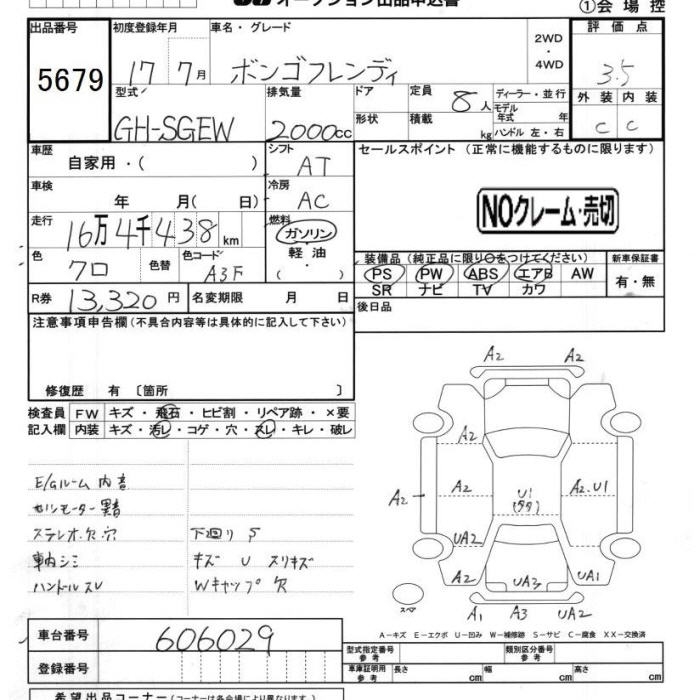 オークション出品申込書
①会場控
出品番号 初度登録年月 車名・グレード 2WD ・ 4WD 評価点
5679 17 7月 ボンゴフレンディ 3.5
型式 排気量 ドア 定員 8人 ディーラー・並行 外装 内装
GH-SGEW 2000cc 形状 積載 kg モデル年式 年 ハンドル 左・右 C C
車歴 自家用・( ) シフト AT セールスポイント (正常に機能するものに限ります)
車検 年 月( 日) 冷房 AC
NOクレーム・売切
走行 16万4千438km 燃料 ガソリン 軽油 ( )
色 クロ 色替 色コード A3F
装備品 (純正品に限り○をつけてください) 新車保証書
PS PW ABS エアB AW 有・無
SR ナビ TV カワ
R券 13,320円 名変期限 月 日
後日品
注意事項申告欄 (不具合内容等は具体的に記入して下さい)
修復歴 有 〔箇所 〕
検査員 FW キズ・飛石・ヒビ割・リペア跡・×要
記入欄 内装 キズ・汚レ・コゲ・穴・スレ・キレ・破レ
A2 A2
A2
A2 A2 U1 (ララ) A2.U1
UA2
A2 UA3 UA1
スペア
A1 A3 UA2
E/Gルーム内音
セルモーター異音
ステレオ欠.穴 下廻りS
車内シミ キズ U スリキズ
ハンドルスレ Wキャップ欠
A-キズ E-エクボ U-凹み W-補修跡 S-サビ C-腐食 XX-交換済
車台番号 606029
型式指定番号 参考 類別区分番号 参考
登録番号
車庫証明用 参考 長さ cm 幅 cm 高さ cm
希望出品コーナー (コーナー名は各会場により異なります)